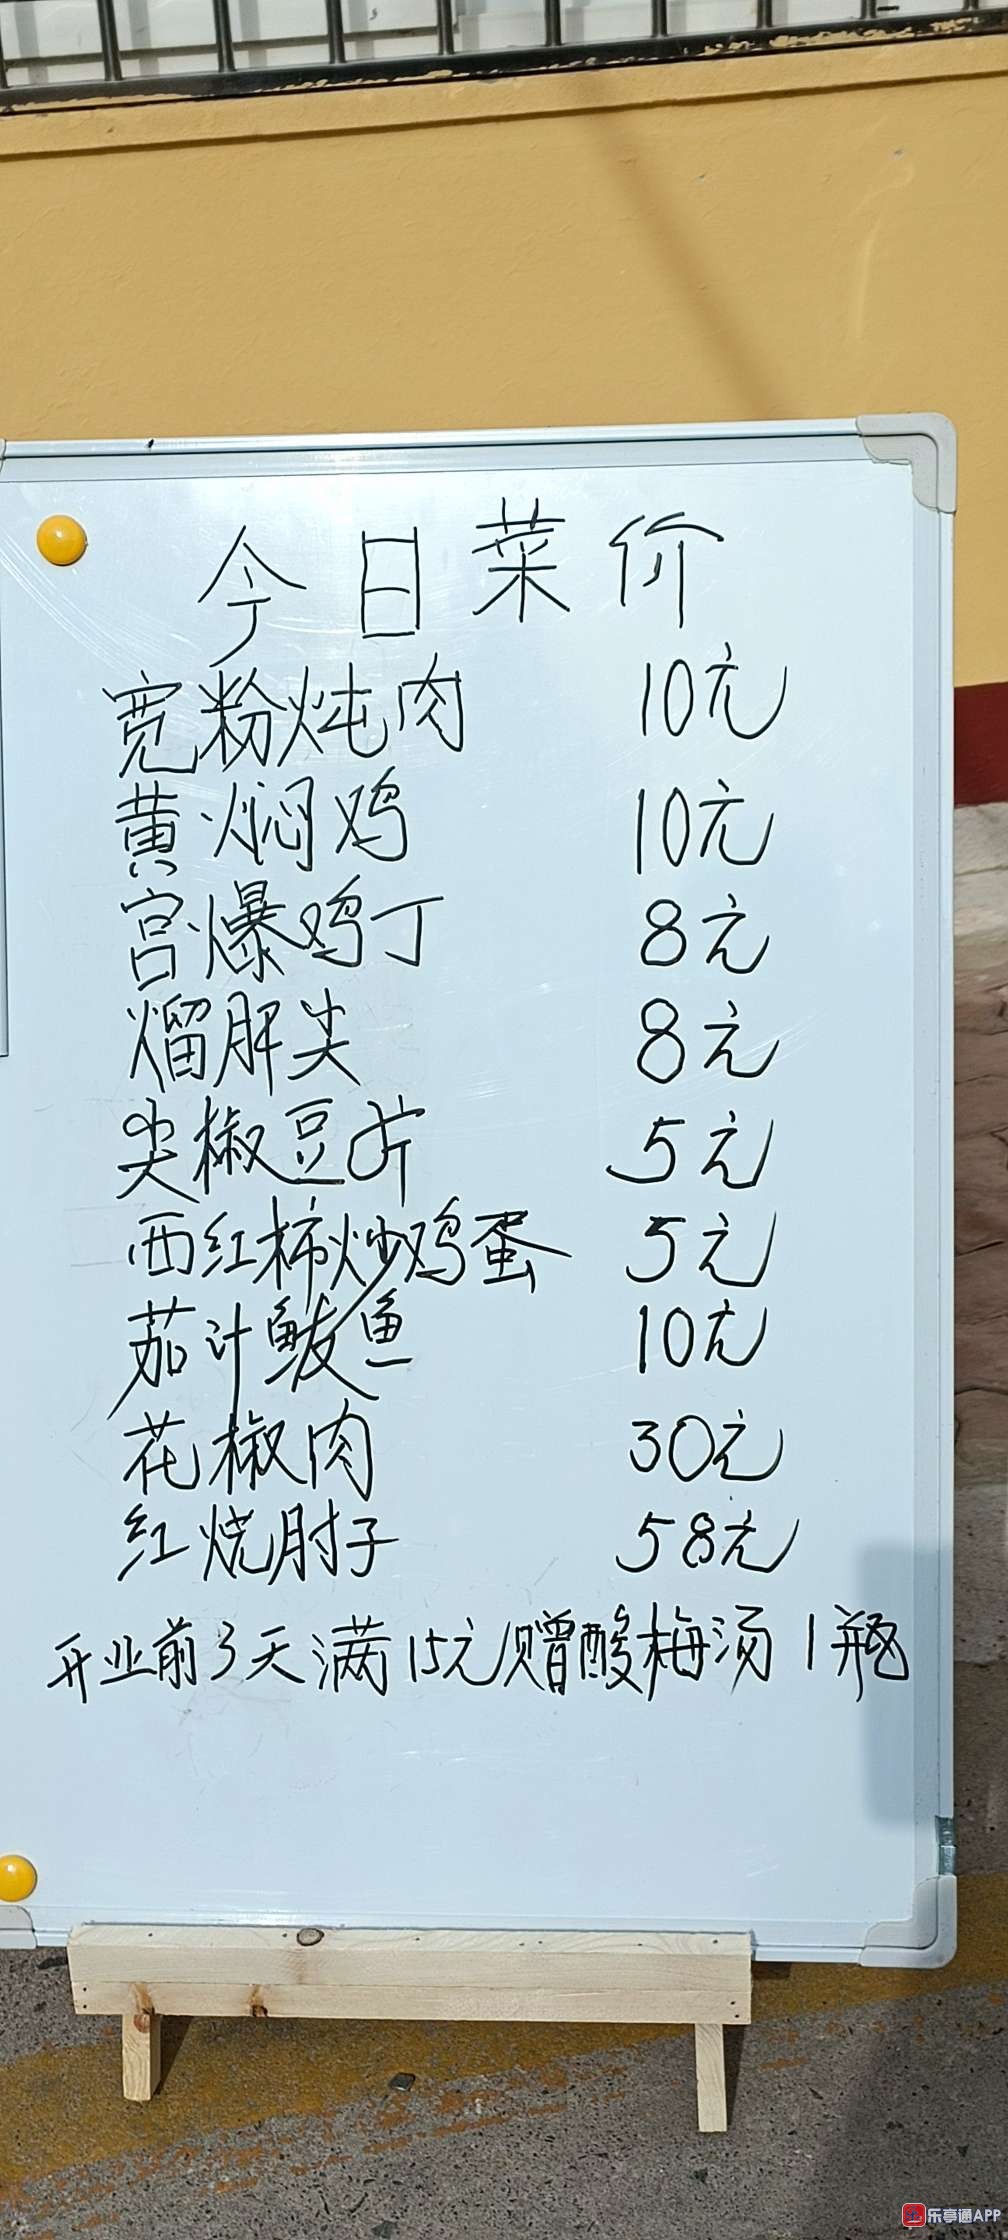 今日菜价
宽粉炖肉 10元
黄焖鸡 10元
宫爆鸡丁 8元
熘肝尖 8元
尖椒豆片 5元
西红柿炒鸡蛋 5元
茄汁鲅鱼 10元
花椒肉 30元
红烧肘子 58元
开业前3天满15元赠酸梅汤1瓶
乐亭通APP